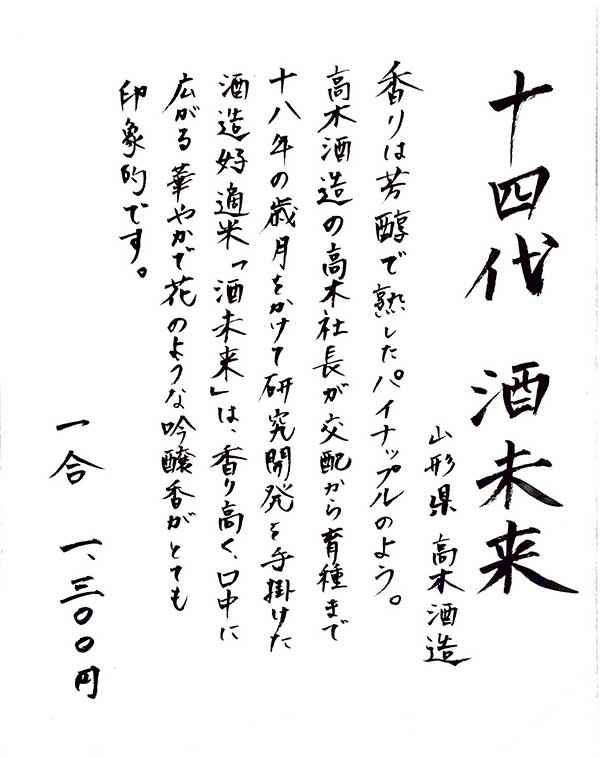 十四代 酒未来
山形県 高木酒造
香りは芳醇で熟したパイナップルのよう。
高木酒造の高木社長が交配から育種まで
十八年の歳月をかけて研究開発を手掛けた
酒造好適米「酒未来」は、香り高く、口中に
広がる華やかで花のような吟醸香がとても
印象的です。
一合 一、三〇〇円